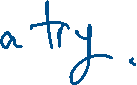 a try.